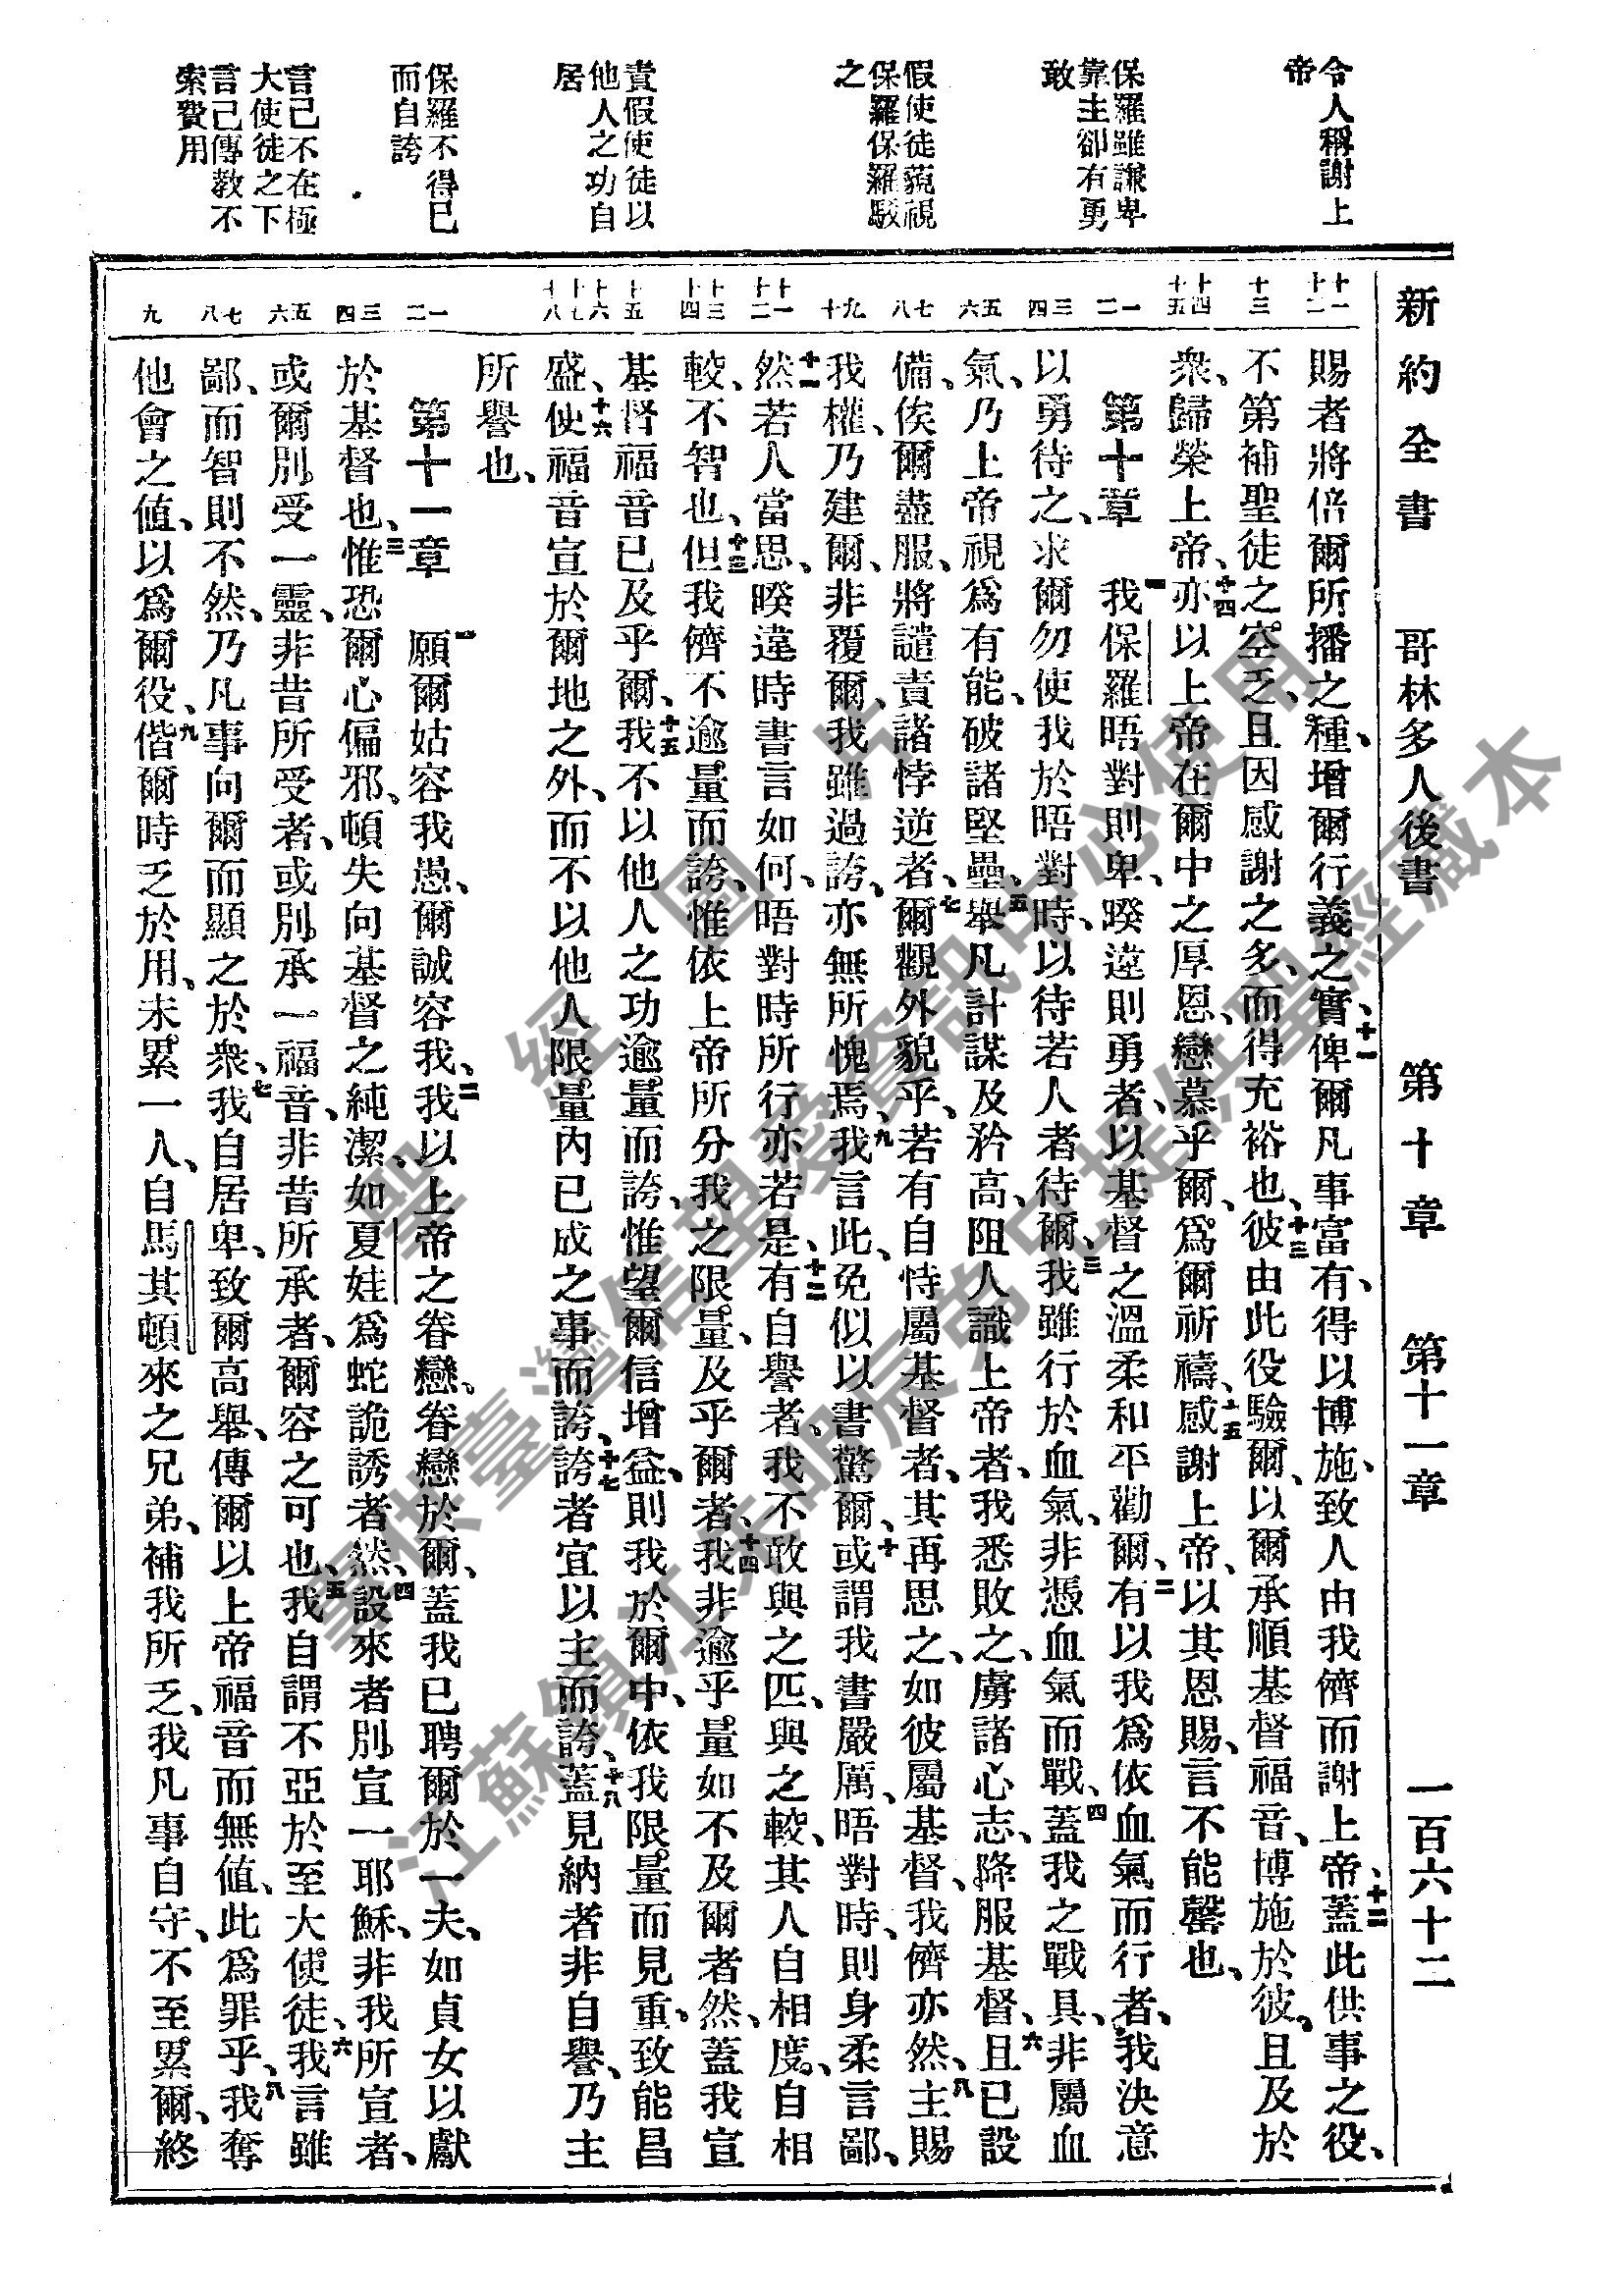 令人稱謝上
帝
保羅雖謙卑
靠主卻有勇
敢
假使徒藐視
保羅保羅駁
之
責假使徒以
他人之功自
居
保羅不得已
而自誇
言己不在極
大使徒之下
言己傳教不
索費用
新約全書 哥林多人後書 第十章 第十一章 一百六十二
十一
十二
十三
十四
十五
一
二
三
四
五
六
七
八
九
十
十一
十二
十三
十四
十五
十六
十七
十八
一
二
三
四
五
六
七
八
九
賜者將倍爾所播之種、增爾行義之實、十一俾爾凡事富有、得以博施、致人由我儕而謝上帝、十二蓋此供事之役、
不第補聖徒之空乏、且因感謝之多、而得充裕也、十三彼由此役驗爾、以爾承順基督福音、博施於彼、且及於
衆、歸榮上帝、十四亦以上帝在爾中之厚恩、戀慕乎爾、爲爾祈禱、十五感謝上帝、以其恩賜、言不能罄也、
第十章 一我保羅晤對則卑、暌違則勇者、以基督之溫柔和平勸爾、二有以我爲依血氣而行者、我決意
以勇待之、求爾勿使我於晤對時、以待若人者待爾、三我雖行於血氣、非憑血氣而戰、四蓋我之戰具、非屬血
氣、乃上帝視爲有能、破諸堅壘、五舉凡計謀及矜高、阻人識上帝者、我悉敗之、虜諸心志、降服基督、六且已設
備、俟爾盡服、將譴責諸悖逆者、七爾觀外貌乎、若有自恃屬基督者、其再思之、如彼屬基督、我儕亦然、八主賜
我權、乃建爾、非覆爾、我雖過誇、亦無所愧焉、九我言此、免似以書驚爾、十或謂我書嚴厲、晤對時、則身柔言鄙、
十一然若人當思、暌違時書言如何、晤對時所行亦若是、十二有自譽者、我不敢與之匹、與之較、其人自相度、自相
較、不智也、十三但我儕不逾量而誇、惟依上帝所分我之限量、及乎爾者、十四我非逾乎量如不及爾者然、蓋我宣
基督福音已及乎爾、十五我不以他人之功逾量而誇、惟望爾信增益、則我於爾中、依我限量而見重、致能昌
盛、十六使福音宣於爾地之外、而不以他人限量內已成之事而誇、十七誇者宜以主而誇、十八蓋見納者非自譽、乃主
所譽也、
第十一章 一願爾姑容我愚、爾誠容我、二我以上帝之眷戀、眷戀於爾、蓋我已聘爾於一夫、如貞女以獻
於基督也、三惟恐爾心偏邪、頓失向基督之純潔、如夏娃爲蛇詭誘者然、四設來者別宣一耶穌、非我所宣者、
或爾別受一靈、非昔所受者、或別承一福音、非昔所承者、爾容之可也、五我自謂不亞於至大使徒、六我言雖
鄙、而智則不然、乃凡事向爾而顯之於衆、七我自居卑、致爾高舉、傳爾以上帝福音而無値、此爲罪乎、八我奪
他會之値、以爲爾役、九偕爾時乏於用、未累一人、自馬其頓來之兄弟、補我所乏、我凡事自守、不至累爾、終
聖經圖片
專供臺灣信望愛資訊中心使用
江蘇鎮江朱明辰弟兄提供聖經藏本